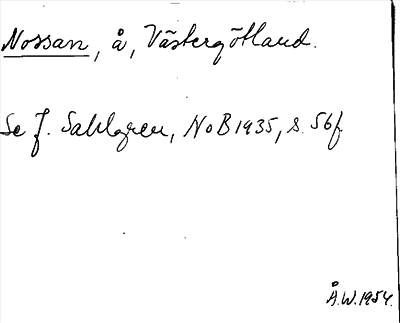 Nossan, å, Västergötland.
Se J. Sahlgren, NoB 1935, s. 56f
Å.W. 1954.